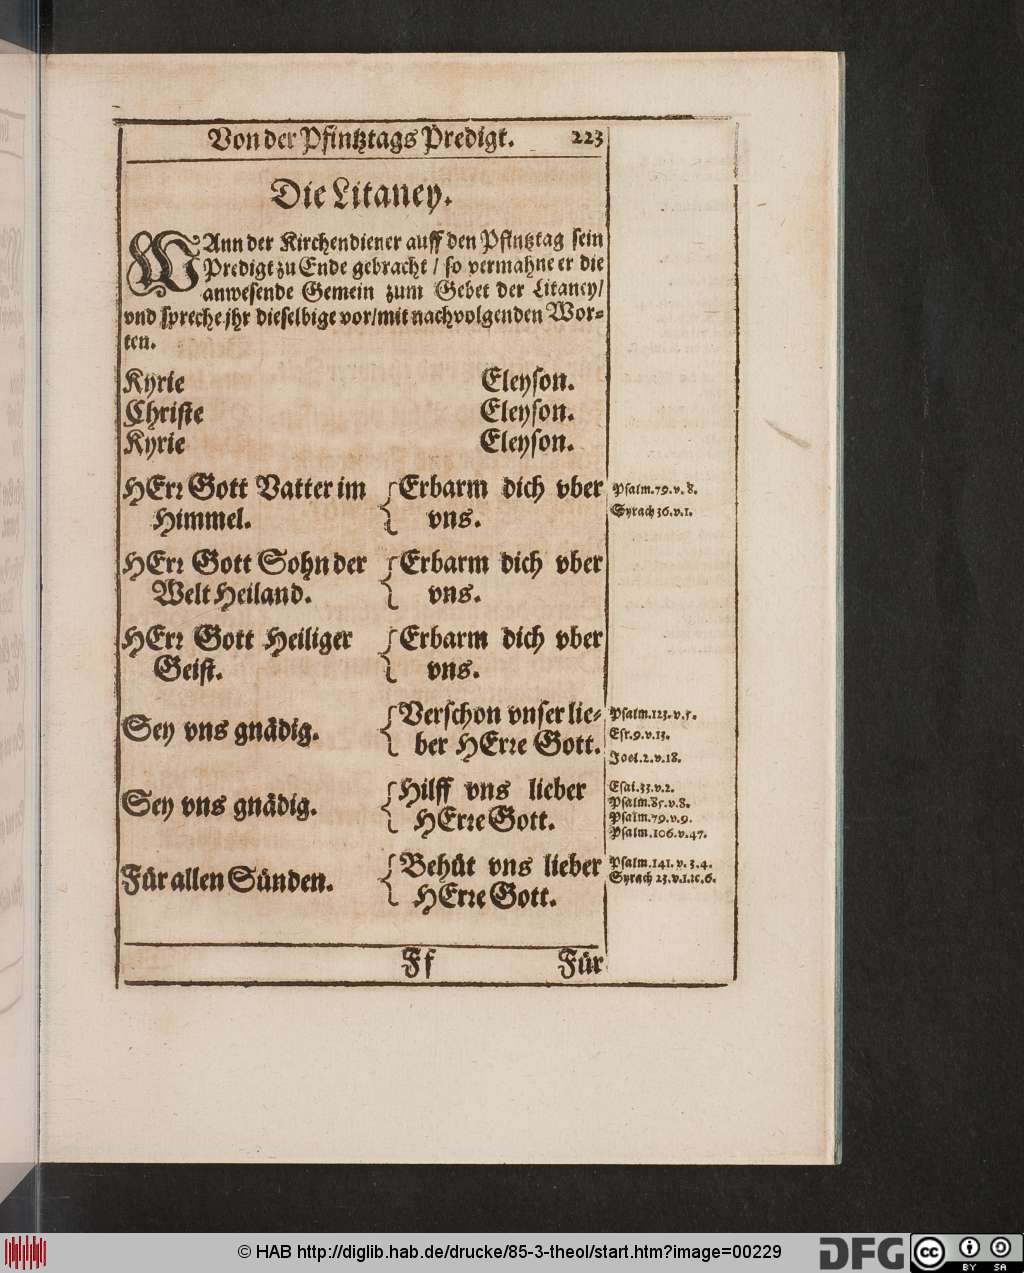 Von der Pfintztags Predigt. 223
Die Litaney.
WAnn der Kirchendiener auff den Pfintztag sein
Predigt zu Ende gebracht / so vermahne er die
anwesende Gemein zum Gebet der Litaney/
vnd spreche jhr dieselbige vor/mit nachvolgenden Wor⸗
ten.
Kyrie Eleyson.
Christe Eleyson.
Kyrie Eleyson.
HErꝛ Gott Vatter im Erbarm dich vber Psalm.79.v.8.
Himmel. vns. Syrach 36.v.1.
HErꝛ Gott Sohn der Erbarm dich vber
Welt Heiland. vns.
HErꝛ Gott Heiliger Erbarm dich vber
Geist. vns.
Sey vns gnädig. Verschon vnser lie⸗ Psalm.123.v.5.
ber HErꝛe Gott. Esr.9.v.13.
Joel.2.v.18.
Sey vns gnädig. Hilff vns lieber Esai.33.v.2.
HErꝛe Gott. Psalm.85.v.8.
Psalm.79.v.9.
Psalm.106.v.47.
Für allen Sünden. Behüt vns lieber Psalm.141.v.3.4.
HErꝛe Gott. Syrach 23.v.1.ꝛc.6.
Ff Für
© HAB http://diglib.hab.de/drucke/85-3-theol/start.htm?image=00229
DFG cc BY SA